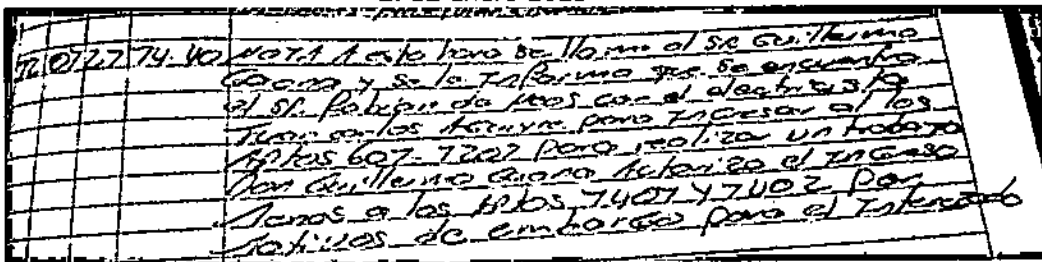 NOTA A esta hora se llamo al SR Guillermo
Gaona y se le Informa que se encuentra
el SR. Fabian de con el electrisista
Juan Carlos Aguirre para Ingresar al los
Aptos 607-1202 Para realizar un trabajo
Don Guillermo Gaona Autoriza el Ingreso
Menos a los Aptos 1401 Y 1402 Por
Motivos de embargo para el Interesado